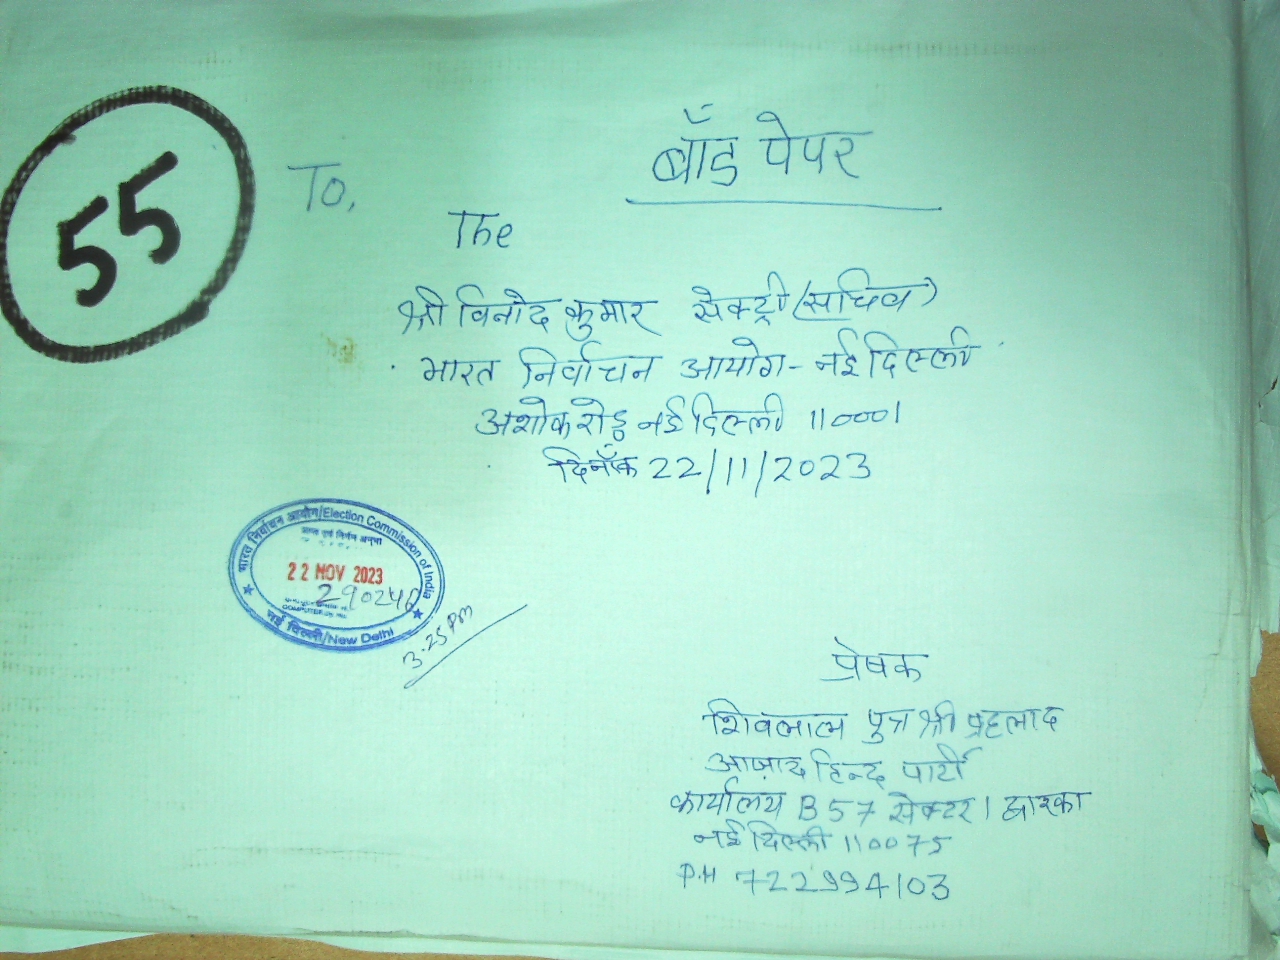 55
बाँड पेपर
To,
The
श्री विनोद कुमार सेक्ट्री (सचिव)
भारत निर्वाचन आयोग - नई दिल्ली
अशोक रोड़ नई दिल्ली 110001
दिनाँक 22/11/2023
भारत निर्वाचन आयोग/Election Commission of India
22 NOV 2023
नई दिल्ली/New Delhi
3.25 PM
प्रेषक
शिवलाल पुत्र श्री प्रहलाद
आज़ाद हिन्द पार्टी
कार्यालय B 57 सेक्टर 1 द्वारका
नई दिल्ली 110075
P.H 722994103